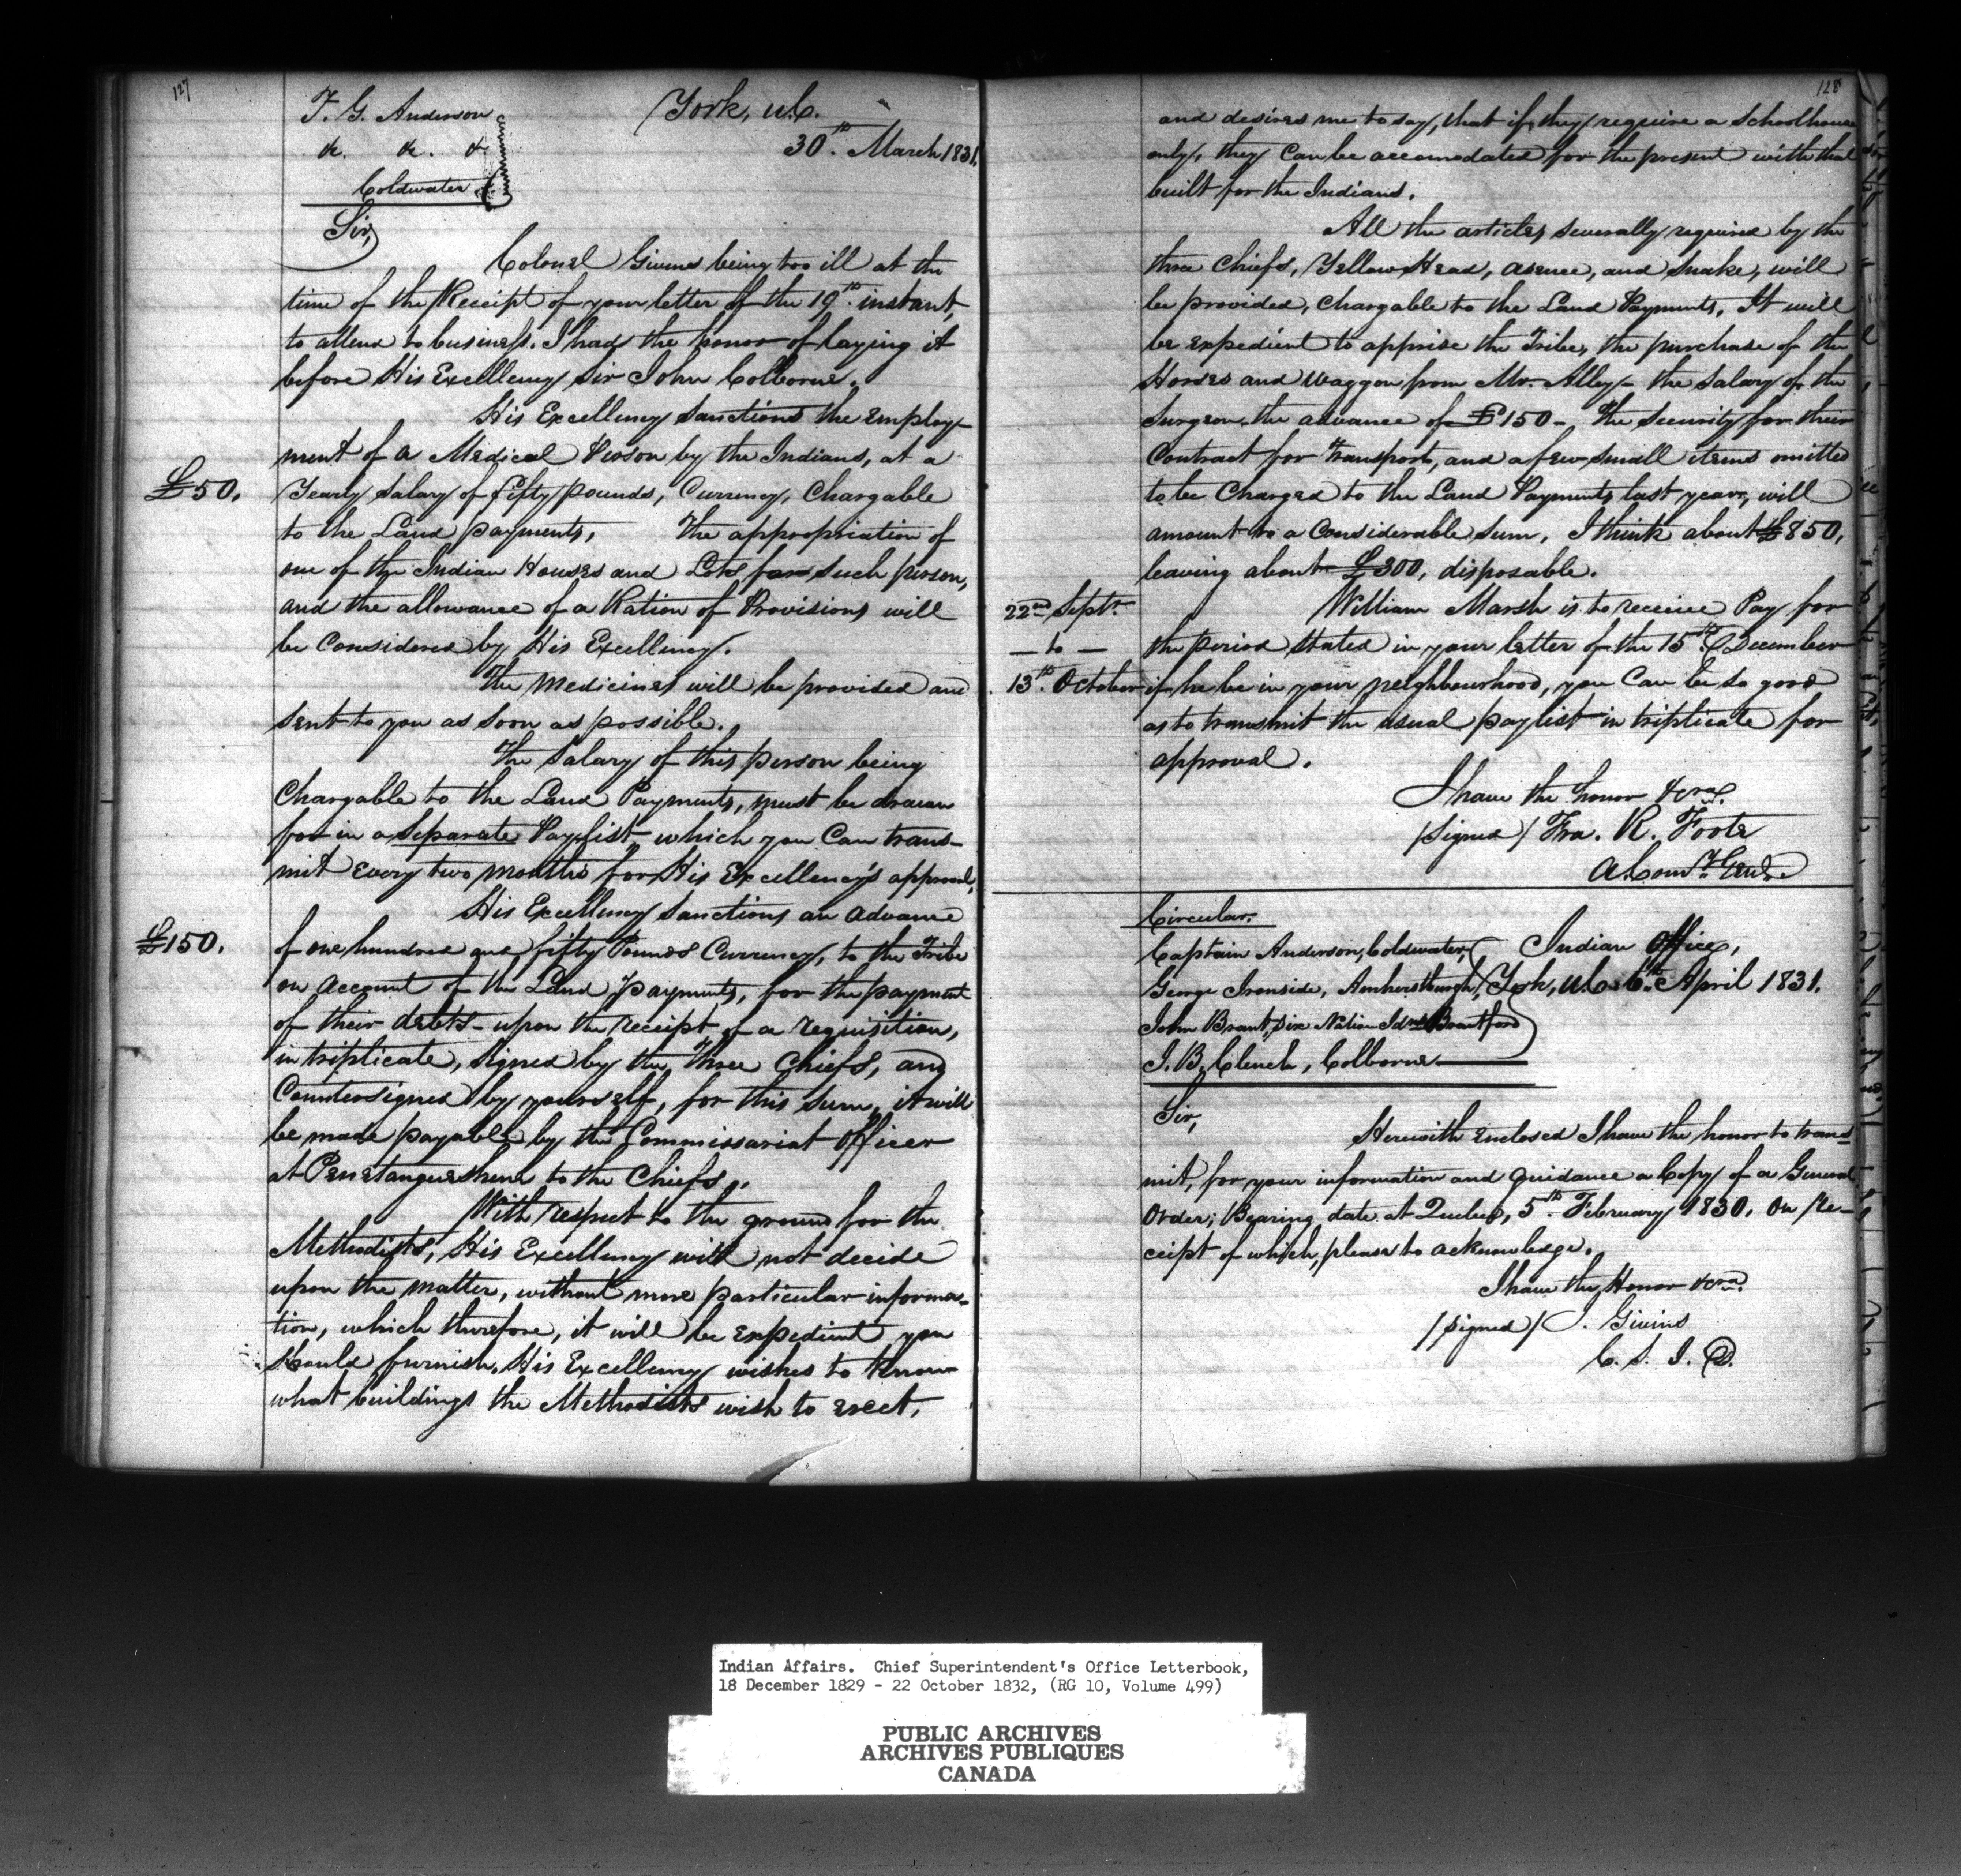 127
T. G. Anderson
&c. &c. &c
Coldwater
York, U.C.
30th. March 1831.
Sir,
Colonel Givins being too ill at the
time of the Receipt of your letter of the 19th. instant,
to attend to business. I had the honor of laying it
before His Excellency Sir John Colborne.
His Excellency Sanctions the employ-
ment of a Medical Person by the Indians, at a
£50.
Yearly Salary of fifty pounds, Currency, Chargable
to the Land payments, The appropriation of
one of the Indian Houses and Lots for such person,
and the allowance of a Ration of Provisions will
be Considered by His Excellency.
The Medicines will be provided and
sent to you as soon as possible.
The Salary of this person being
Chargable to the Land Payments, must be drawn
for in a Separate Paylist which you Can trans-
mit every two months for His Excellency's approval.
His Excellency Sanctions an advance
£150.
of one hundred and fifty Pounds Currency, to the Tribe
on account of the Land payments, for the payment
of their debts - upon the receipt of a requisition,
in triplicate, signed by the Three Chiefs, and
Countersigned by yourself, for this Sum, it will
be made payable by the Commissariat Officer
at Penetanguishene to the Chiefs.
With respect to the ground for the
Methodists, His Excellency will not decide
upon the matter, without more particular informa-
tion, which therefore, it will be expedient you
should furnish. His Excellency wishes to know
what buildings the Methodists wish to erect,
128
and desires me to say, that if they require a Schoolhouse
only, they Can be accomodated for the present with that
built for the Indians.
All the articles severally required by the
three Chiefs, Yellow Head, Asence, and Snake, will
be provided, Chargable to the Land Payments, It will
be expedient to apprise the Tribe, the purchase of the
Horses and Waggon from Mr. Alley - the Salary of the
Surgeon, the advance of £150 - The Security for their
Contract for Transport, and a few small items omitted
to be Charged to the Land Payments last year, will
amount to a Considerable Sum, I think about £850,
leaving about £300, disposable.
22nd Septr.
- to -
13th. October
William Marsh is to receive Pay for
the period stated in your letter of the 15th. December
if he be in your neighbourhood, you Can be so good
as to transmit the usual paylist in triplicate for
approval.
I have the honor &cra.
/Signed/ Fra. R. Foote
A Comy. Genl.
Circular.
Captain Anderson, Coldwater,
George Ironside, Amherstburgh,
John Brant, Six Nation Idns Brantford
J. B. Clench, Colborne
Indian Office,
York, U.C. 6th. April 1831.
Sir,
Herewith enclosed I have the honor to trans-
mit, for your information and guidance a Copy of a General
Order; Bearing date at Quebec, 5th. February 1830. On Re-
ceipt of which, please to acknowledge.
I have the Honor &cra.
/Signed/ J. Givins
C. S. I. D.
Indian Affairs. Chief Superintendent's Office Letterbook,
18 December 1829 - 22 October 1832, (RG 10, Volume 499)
PUBLIC ARCHIVES
ARCHIVES PUBLIQUES
CANADA